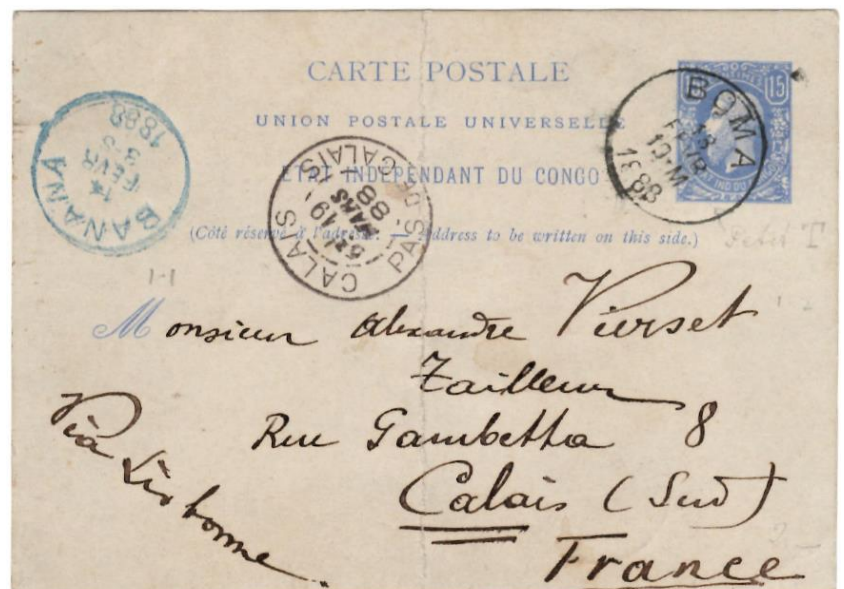 CARTE POSTALE
UNION POSTALE UNIVERSELLE
ETAT INDEPENDANT DU CONGO
(Côté réservé à l'adresse. — Address to be written on this side.)
15
15
BOMA
FEVR
1888
BANANA
FEVR
1888
CALAIS
PAS-DE-CALAIS
19
MARS
88
1-1
Petit T
Monsieur Alexandre Vierset
Tailleur
Rue Gambetta 8
Calais (Sud)
France
Via Lisbonne.